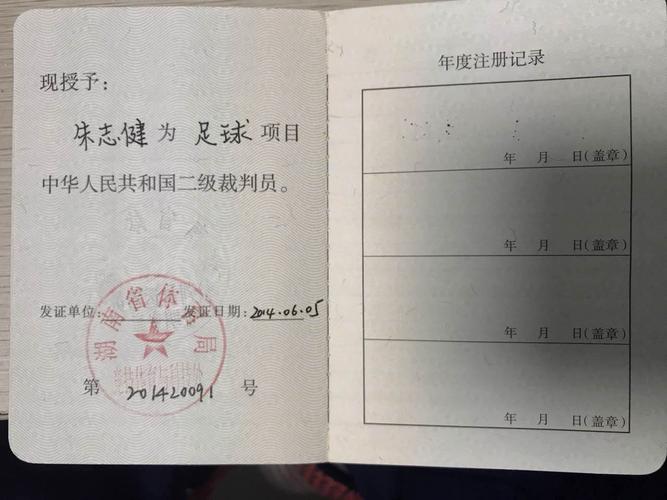 现授予：
朱志健为 足球 项目
中华人民共和国二级裁判员。
湖南省体育局
发证单位： 发证日期：2014.06.05
第 201420091 号
年度注册记录
年 月 日(盖章)
年 月 日(盖章)
年 月 日(盖章)
年 月 日(盖章)